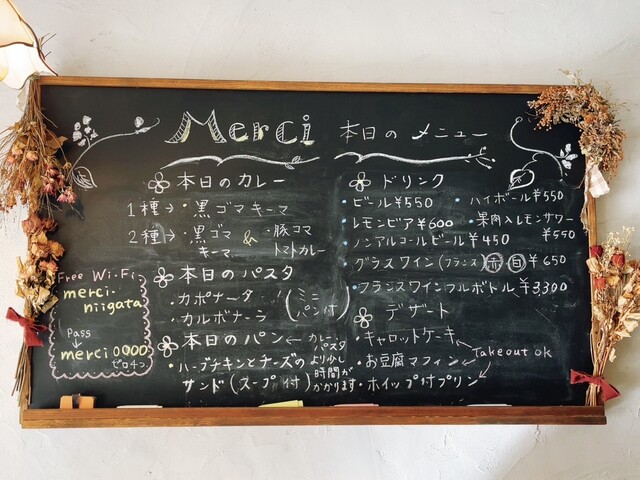 Merci 本日の メニュー
本日のカレー
1種→・黒ゴマキーマ
2種→・黒ゴマキーマ & ・豚コマトマトカレー
本日のパスタ
・カポナータ
・カルボナーラ
(ミニパン付)
本日のパン ← カレーパスタより少し時間がかかります
・ハーブチキンとチーズの
サンド(スープ付)
Free Wi-Fi
merci-
niigata
Pass
↓
merci0000
ゼロ4つ
ドリンク
・ビール¥550
・ハイボール¥550
・レモンビア¥600
・果肉入レモンサワー
¥550
・ノンアルコールビール¥450
・グラスワイン(フランス)赤白¥650
・フランスワインフルボトル¥3,300
デザート
・キャロットケーキ
・お豆腐マフィン
・ホイップ付プリン
Takeout ok